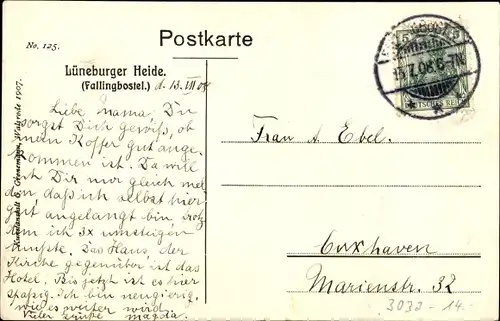 No. 125.
Postkarte
Lüneburger Heide.
(Fallingbostel.) d. 13. VII 08
Liebe Mama, Du
sorgst Dich gewiß, ob
mein Koffer gut ange-
kommen ist. Da will
ich Dir nur gleich mel-
den, daß ich selbst hier
gut angelangt bin trotz-
dem ich 3x umsteigen
mußte. Das Haus, der
Kirche gegenüber ist das
Hotel. Bis jetzt ist es hier
spaßig. Ich bin neugierig,
wie es weiter wird.
Viele Grüße Magda.
Kunstanstalt G. Grönemann, Walsrode 1907.
15.7.08. 6-7N.
DEUTSCHES REICH
Frau A. Ebel.
Cuxhaven
Marienstr. 32
3032 - 14.-